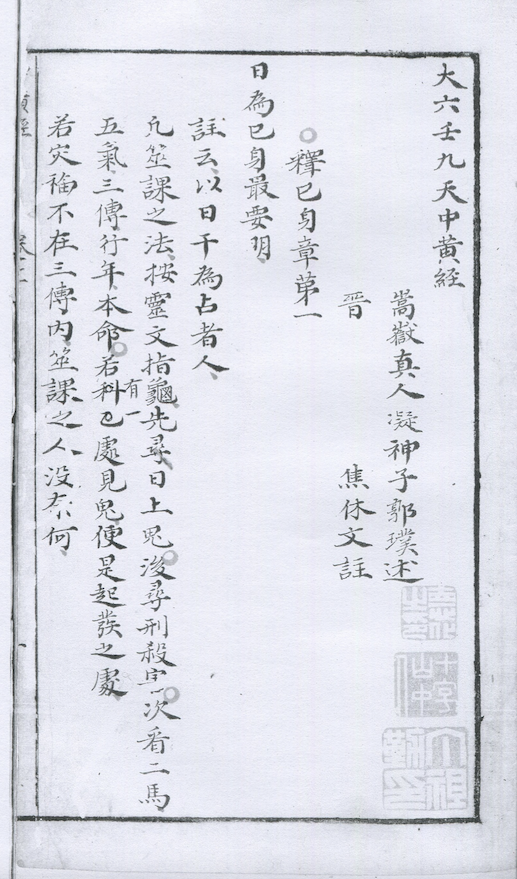 大六壬九天中黃経
嵩嶽真人凝神子郭璞述
晉　焦休文註
釋已身章第一
日為已身最要明
註云以日干為占者人
凢筮課之法按靈文指龜先尋日上鬼後尋刑殺宫次看二馬
五氣三傳行年本命若科有一已處見鬼便是起發之處
若灾福不在三傳内筮課之人没奈何